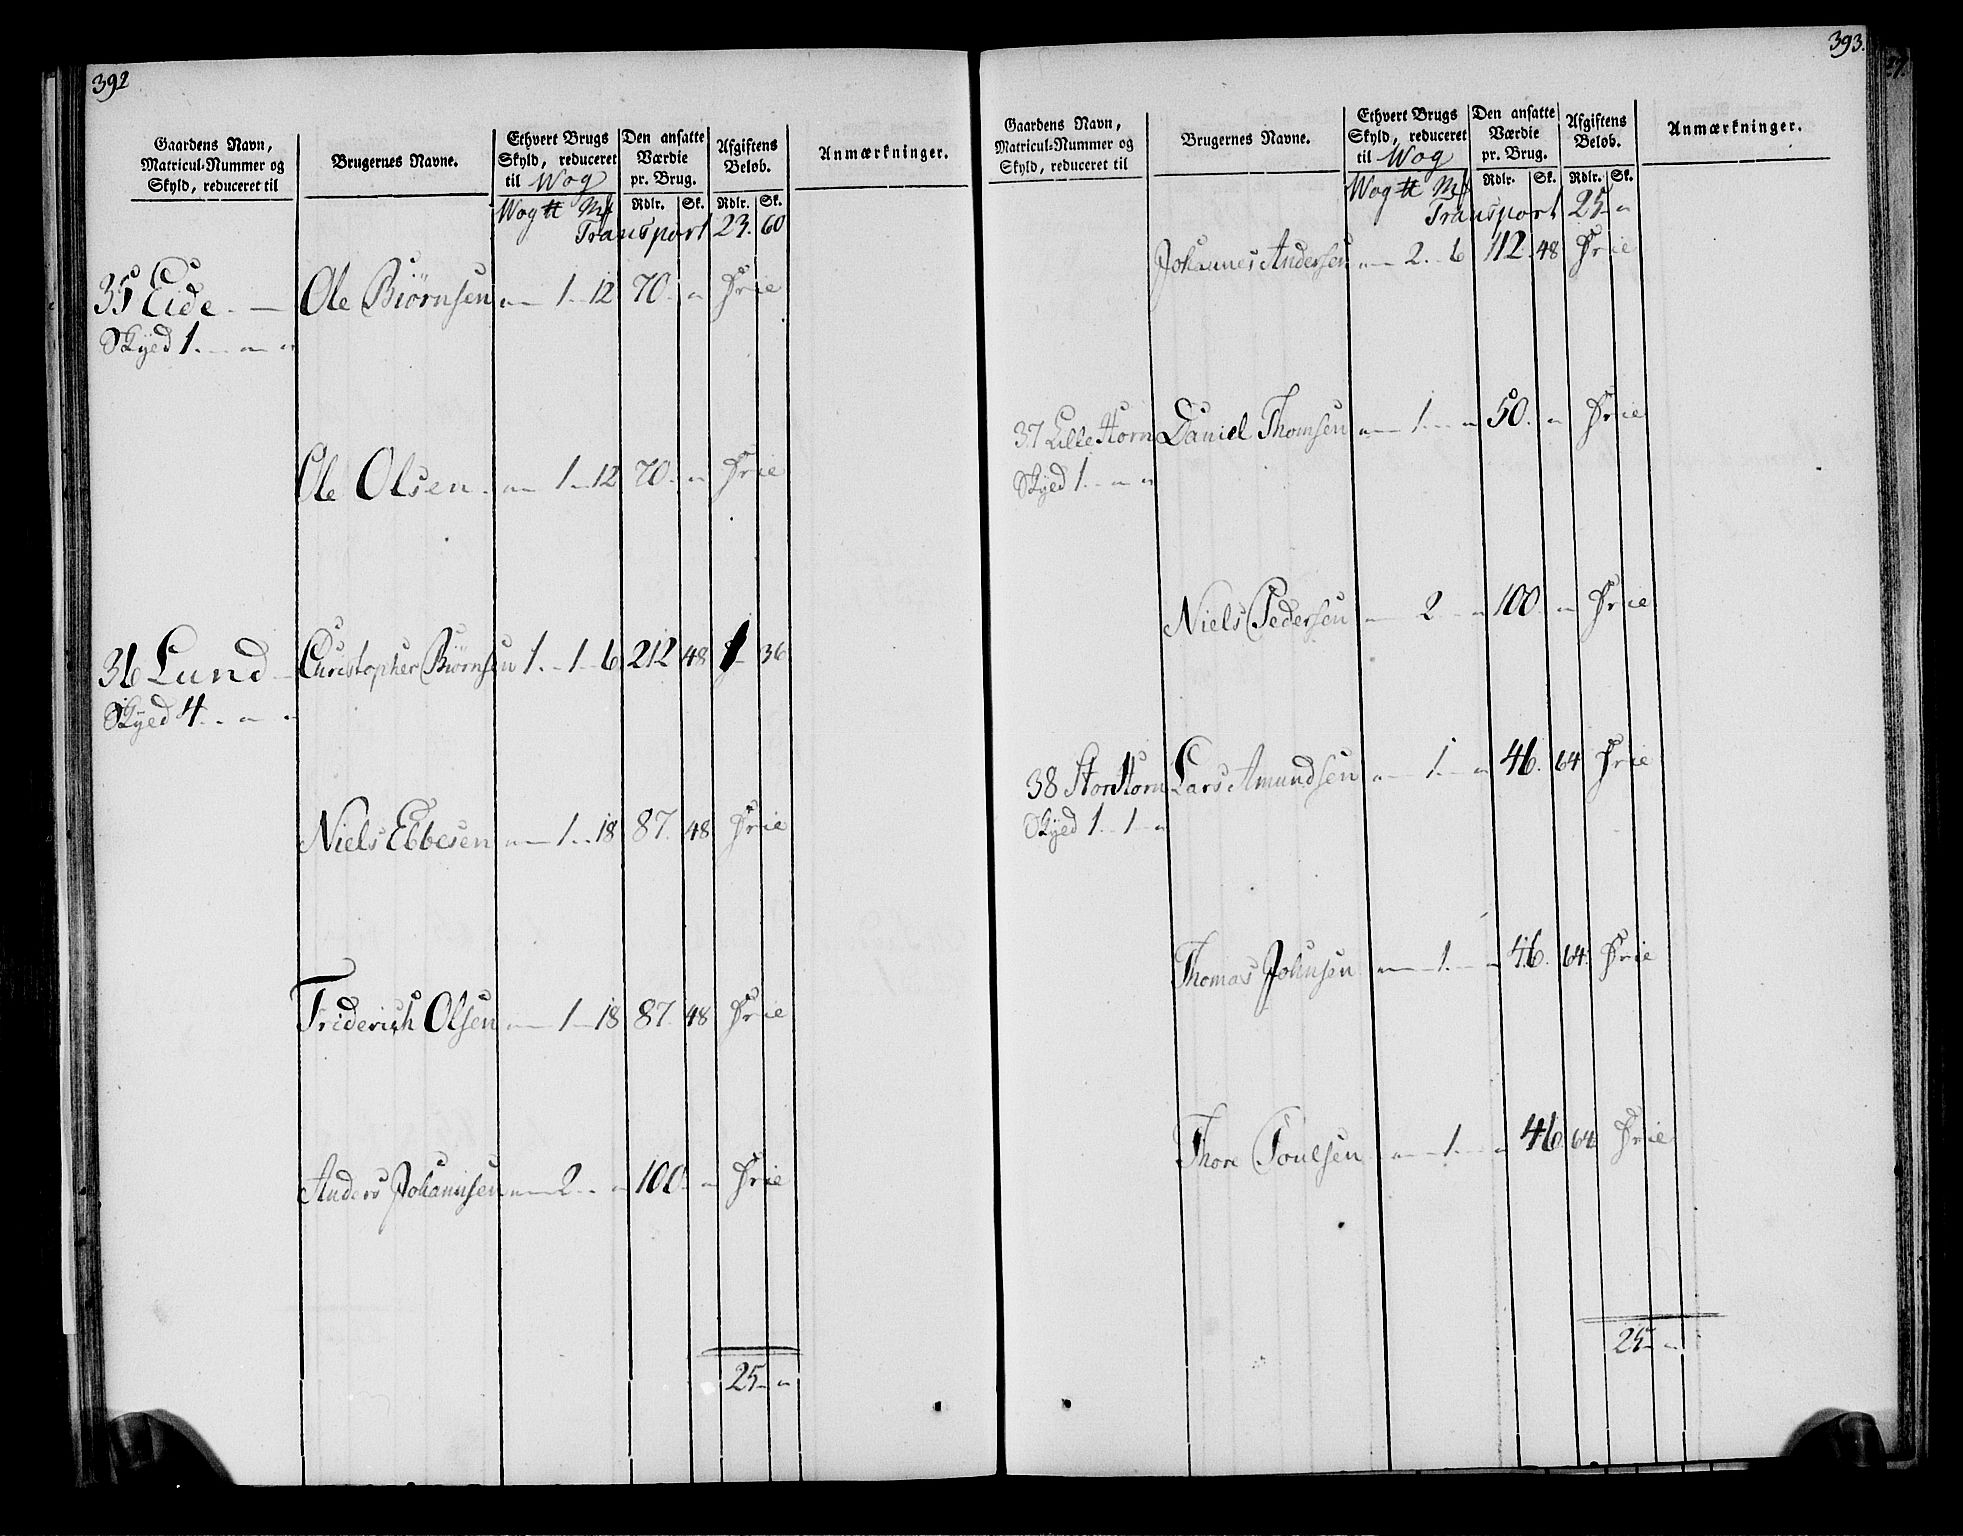 392
Gaardens Navn,
Matricul-Nummer og
Skyld, reduceret til
Brugernes Navne.
Ethvert Brugs
Skyld, reduceret
til Wog
Den ansatte
Værdie
pr. Brug.
Afgiftens
Beløb.
Anmærkninger.
Wog ℔ Mk Rdlr. Sk. Rdlr. Sk.
Transport 23. 60
35 Eide. — Ole Biørnsen „ — 1 „ 12 70. „ Frie
Skyld 1. „ „
Ole Olsen. „ — 1 „ 12 70. „ Frie
36 Lund — Christopher Biørnsen 1. „ 1 „ 6 212 48 1 „ 36
Skyld 4. „ „
Niels Ebbesen „ — 1 „ 18 87. 48 Frie
Friderich Olsen „ — 1 „ 18 87. 48 Frie
Anders Johannsen „ — 2 „ „ 100. „ Frie
25 „ „
393.
Gaardens Navn,
Matricul-Nummer og
Skyld, reduceret til
Brugernes Navne.
Ethvert Brugs
Skyld, reduceret
til Wog
Den ansatte
Værdie
pr. Brug.
Afgiftens
Beløb.
Anmærkninger.
Wog ℔ Mk Rdlr. Sk. Rdlr. Sk.
Transport 25 „
Johannes Andersen „ — 2 „ 6 112. 48 Frie
37 Lille Horn Daniel Thomsen „ — 1 „ „ 50. „ Frie
Skyld 1. „ „
Niels Pedersen „ — 2 „ „ 100. „ Frie
38 Stor Horn Lars Amundsen „ — 1 „ „ 46. 64 Frie
Skyld 1 „ 1 „
Thomas Johnsen „ — 1. „ „ 46. 64. Frie
Thore Poulsen „ — 1 „ „ 46 64 Frie
25 „ „